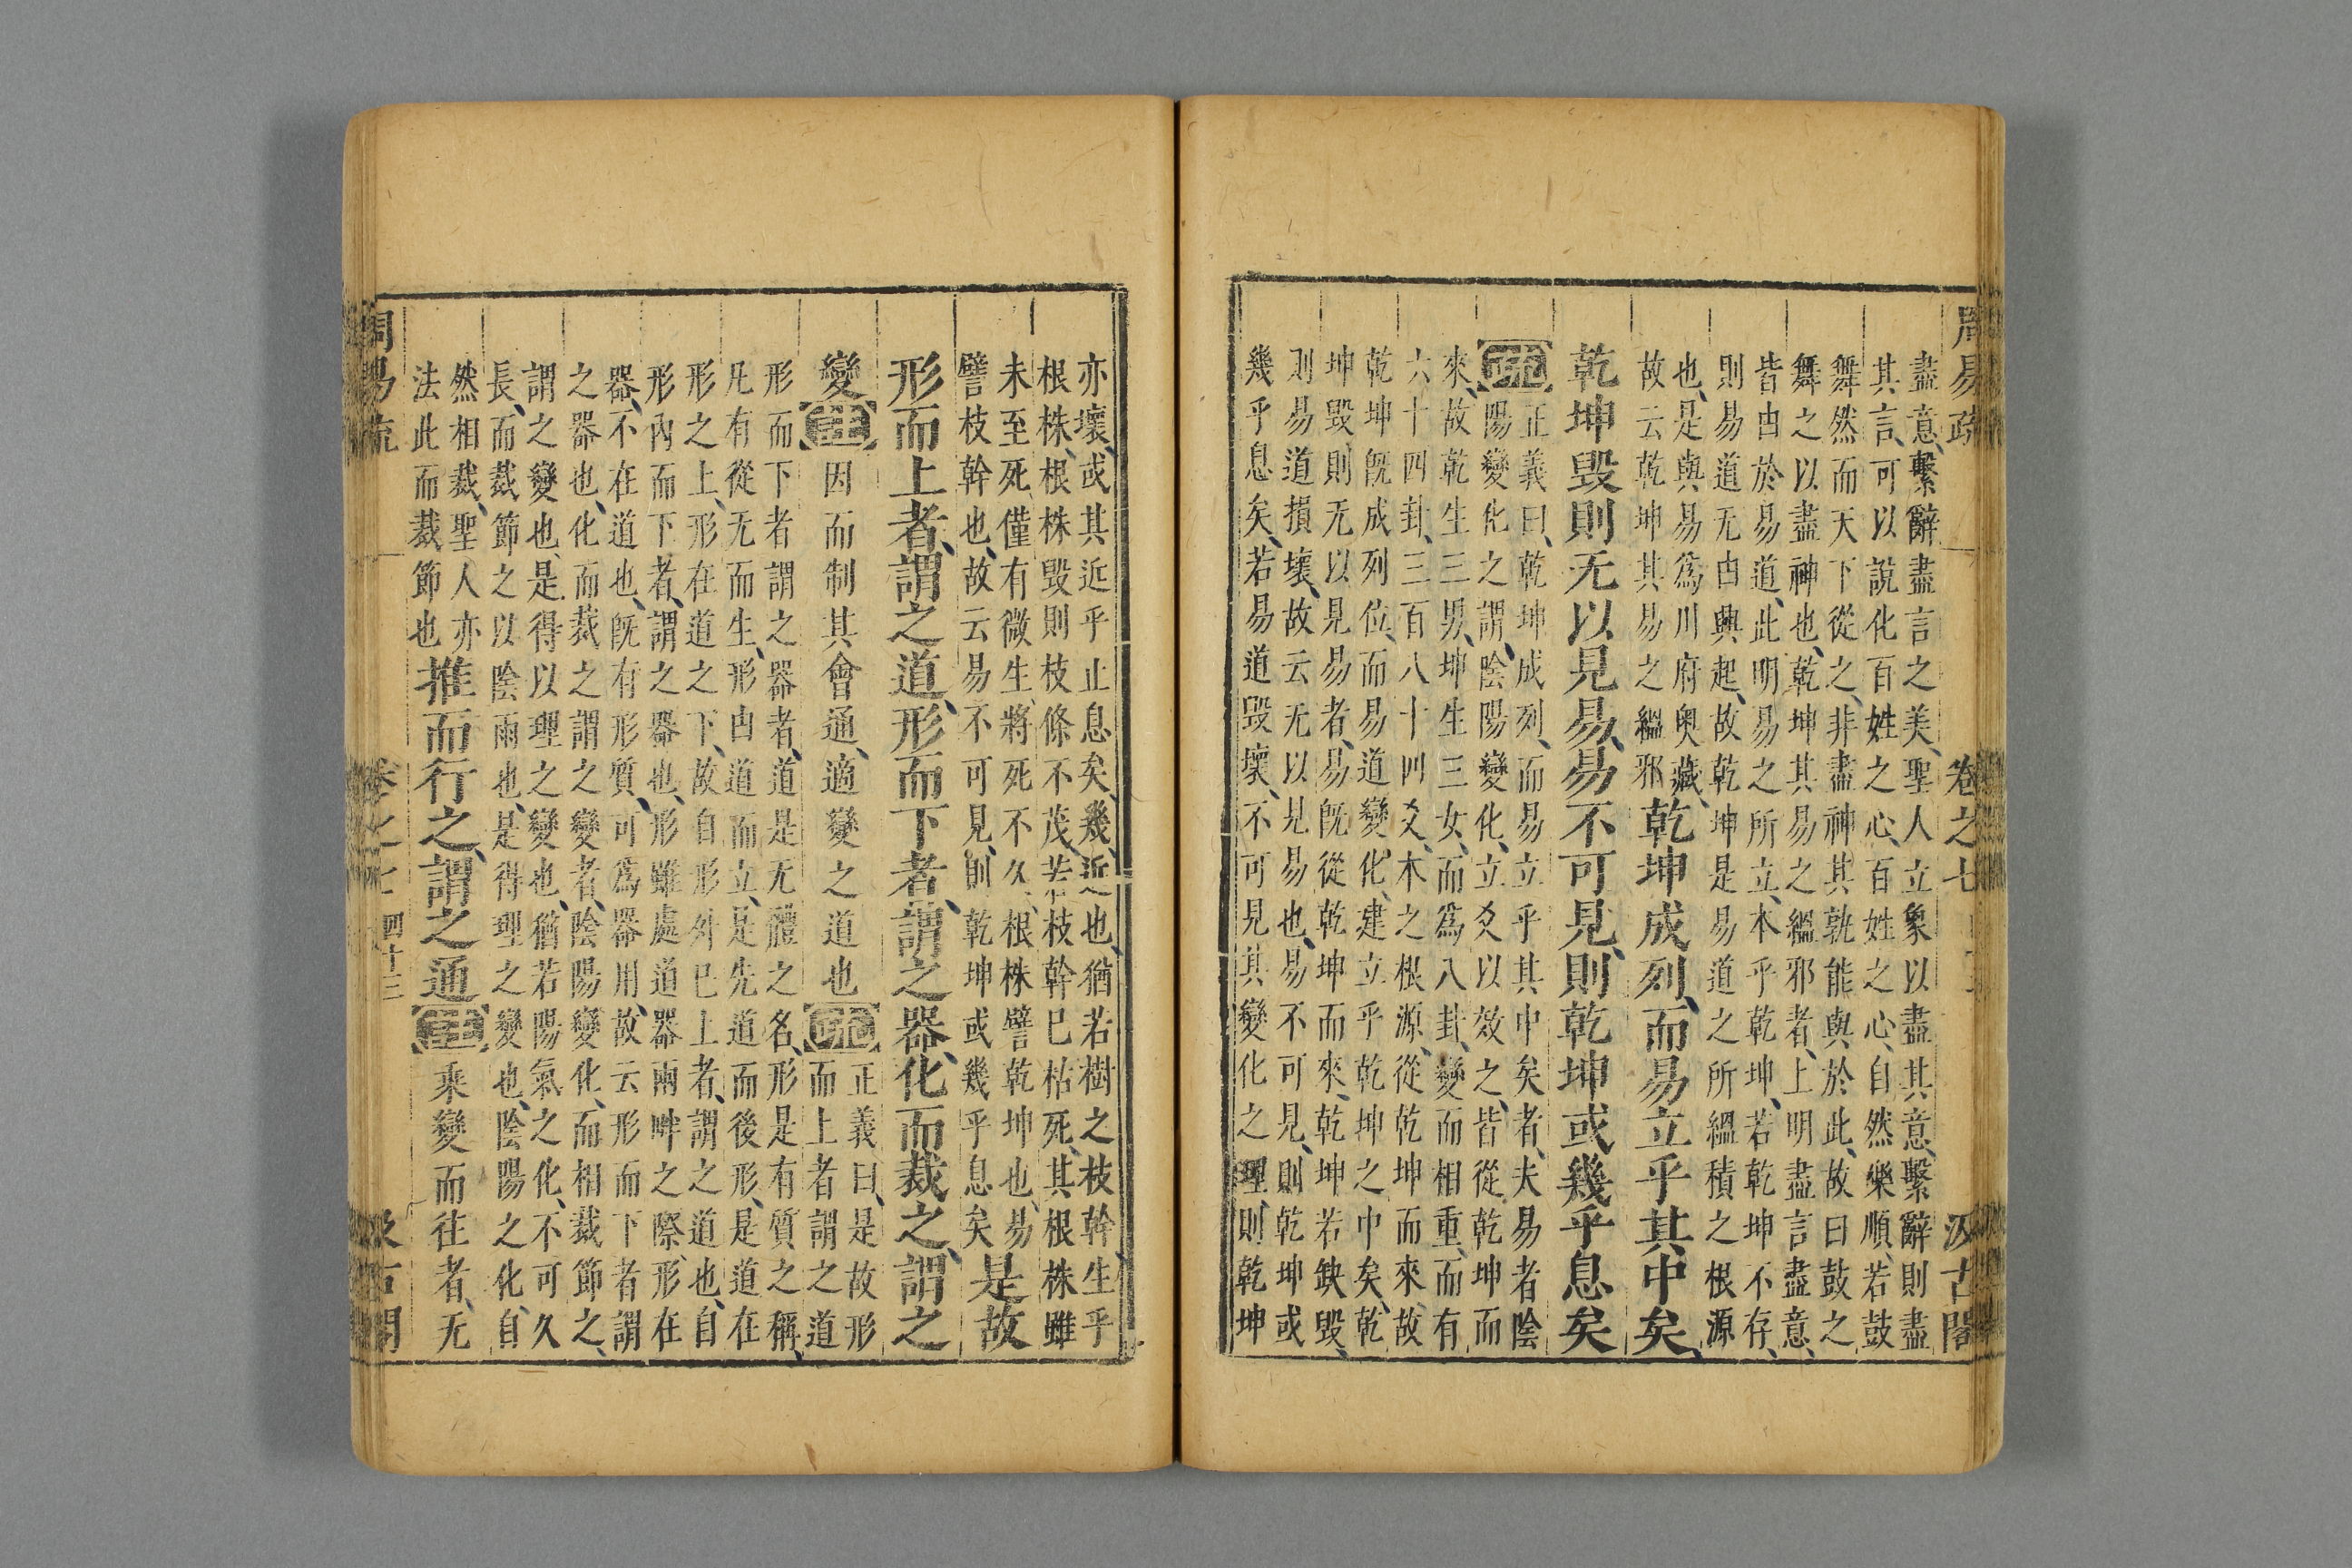 周易疏 卷之七 汲古閣
盡意、繫辭盡言之美、聖人立象以盡其意、繫辭則盡
其言、可以說化百姓之心、百姓之心、自然樂順、若鼓
舞然而天下從之、非盡神其孰能與於此、故曰鼓之
舞之以盡神也、乾坤其易之緼邪者、上明盡言盡意、
皆由於易道、此明易之所立、本乎乾坤、若乾坤不存、
則易道无由興起、故乾坤是易道之所緼積之根源
也、是與易爲川府奧藏、
故云乾坤其易之緼邪乾坤成列、而易立乎其中矣、
乾坤毀則无以見易、易不可見、則乾坤或幾乎息矣
疏正義曰、乾坤成列、而易立乎其中矣者、夫易者陰
陽變化之謂、陰陽變化、立爻以效之、皆從乾坤而
來、故乾生三男、坤生三女、而爲八卦、變而相重、而有
六十四卦、三百八十四爻、本之根源、從乾坤而來、故
乾坤旣成列位、而易道變化、建立乎乾坤之中矣、乾
坤毀則无以見易者、易旣從乾坤而來、乾坤若缺毀、
則易道損壞、故云无以見易也、易不可見、則乾坤或
幾乎息矣、若易道毀壞、不可見其變化之理、則乾坤
亦壞、或其近乎止息矣、幾、近也、猶若樹之枝幹生乎
根株、根株毀則枝條不茂、若枝幹巳枯死、其根株雖
未至死、僅有微生、將死不久、根株譬乾坤也、易
譬枝幹也、故云易不可見、則乾坤或幾乎息矣是故
形而上者、謂之道、形而下者、謂之器、化而裁之、謂之
變註因而制其會通、適變之道也疏正義曰、是故形
而上者謂之道
形而下者謂之器者、道是无體之名、形是有質之稱、
凡有從无而生、形由道而立、是先道而後形、是道在
形之上、形在道之下、故自形外巳上者、謂之道也、自
形內而下者、謂之器也、形雖處道器兩畔之際、形在
器、不在道也、旣有形質、可爲器用、故云形而下者謂
之器也、化而裁之謂之變者、陰陽變化、而相裁節之、
謂之變也、是得以理之變也、猶若陽氣之化、不可久
長、而裁節之以陰雨也、是得理之變也、陰陽之化、自
然相裁、聖人亦
法此而裁節也推而行之、謂之通註乘變而往者、无
周易疏 卷之七 四十三 汲古閣